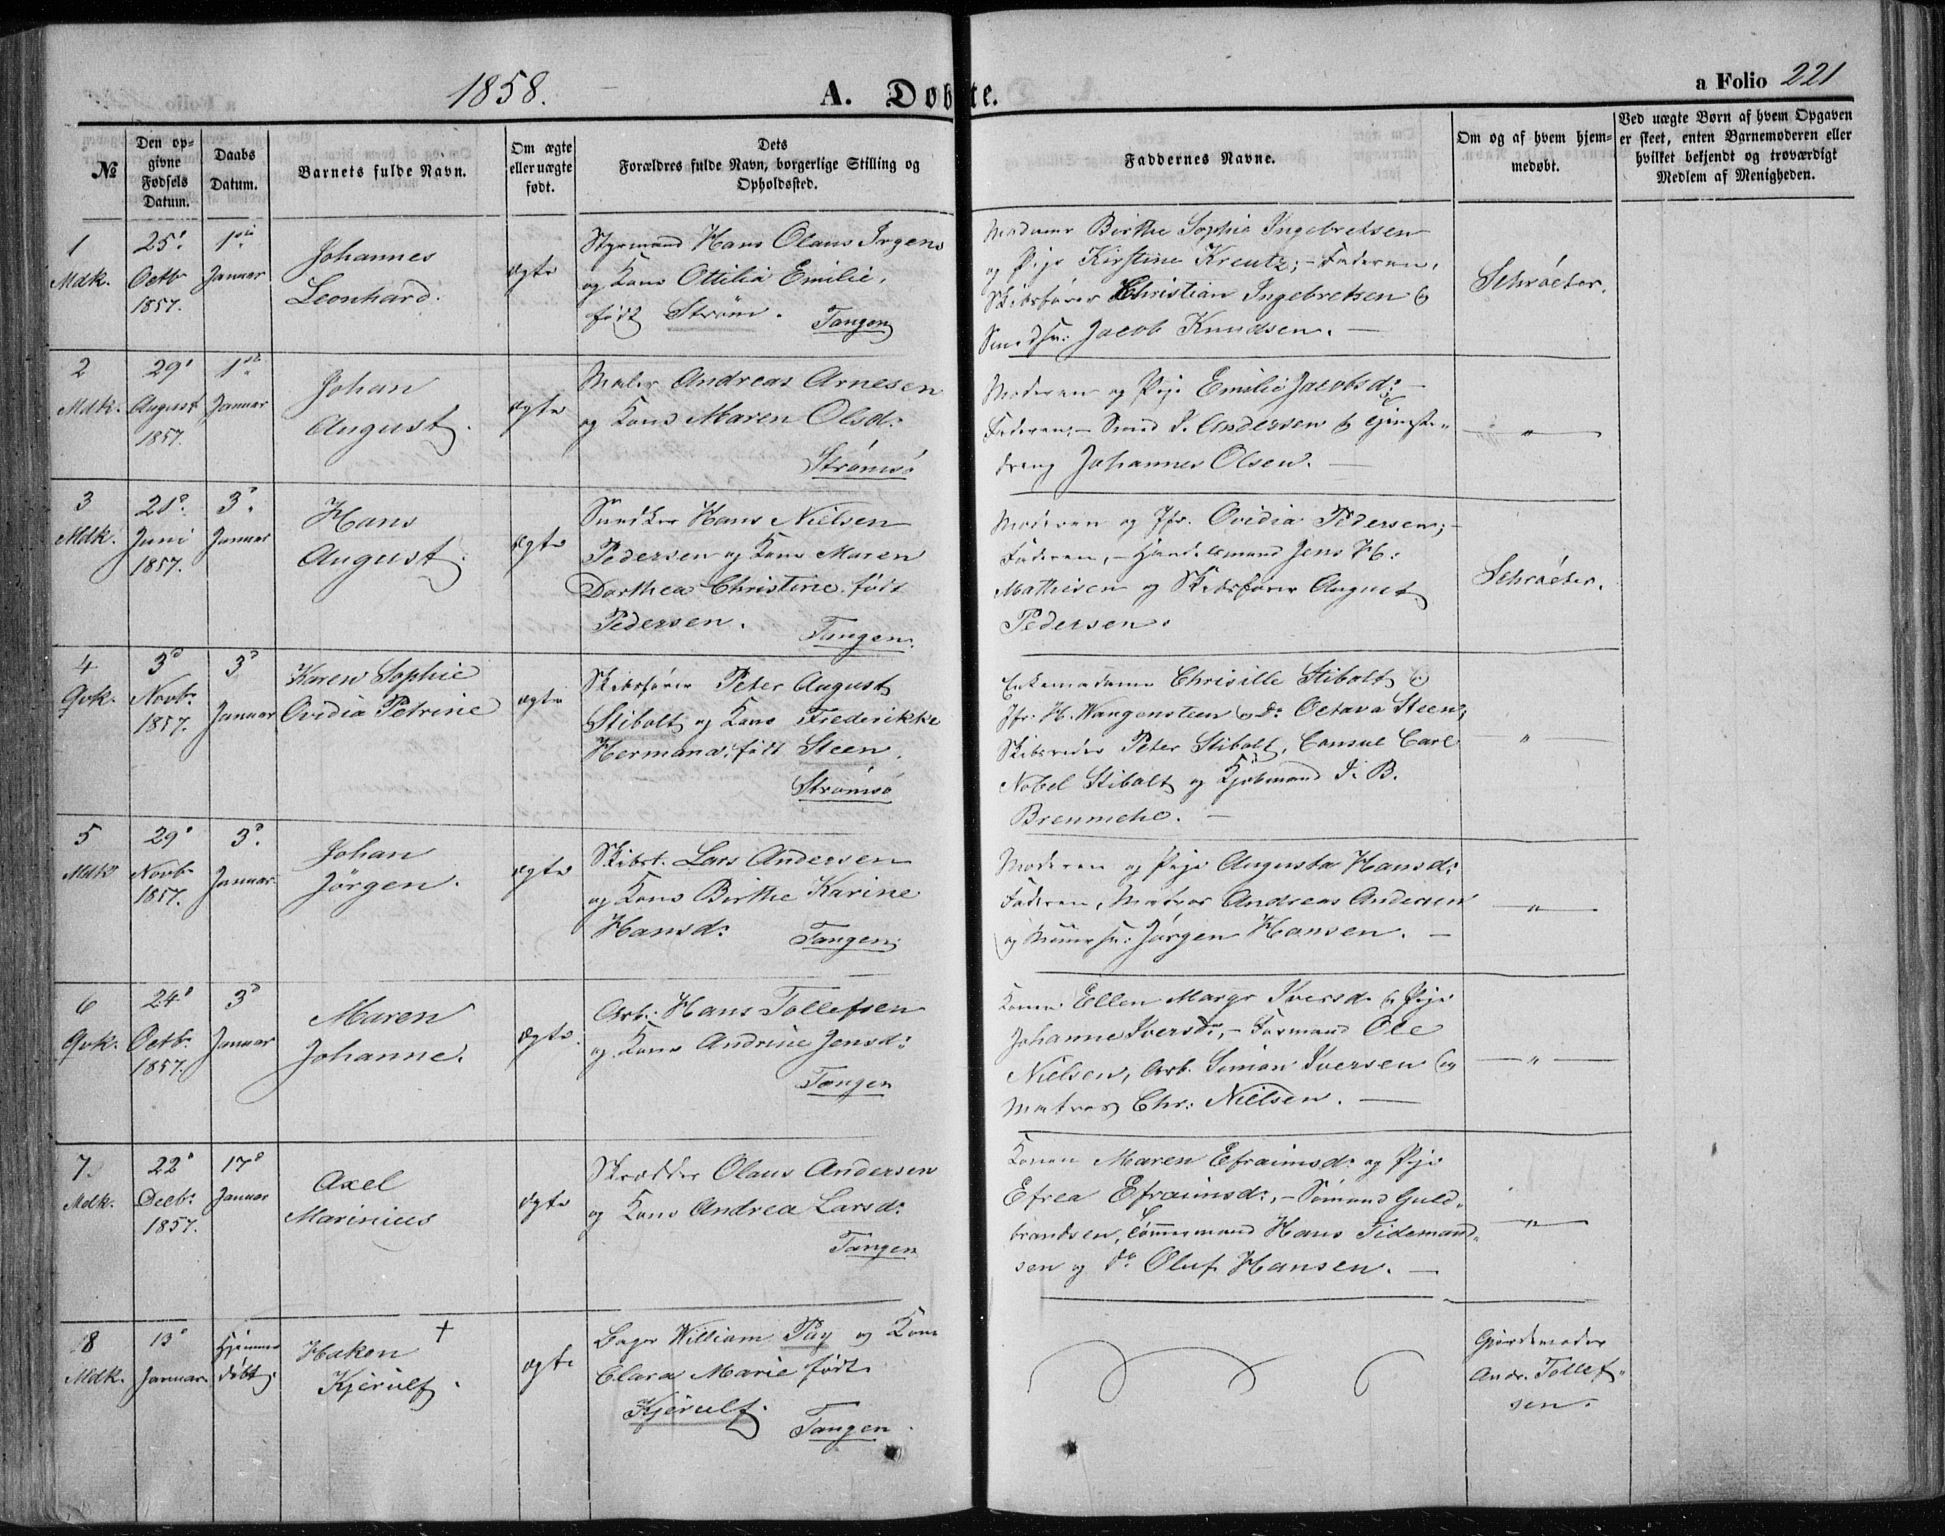 1858.
A. Døbte.
a Folio 221
No
Den op-
givne
Fødsels
Datum.
Daabs
Datum.
Barnets fulde Navn.
Om ægte
eller uægte
født.
Dets
Forældres fulde Navn, borgerlige Stilling og
Opholdssted.
Faddernes Navne.
Om og af hvem hjem-
medøbt.
Ved uægte Børn af hvem Opgaven
er skeet, enten Barnemoderen eller
hvilket bekjendt og troværdigt
Medlem af Menigheden.
1
Mdk.
25d
Octb
1857.
1ste
Januar
Johannes
Leonhard.
ægte
Styrmand Hans Olaus Irgens
og Kone Ottilia Emilie,
født Strøm.
Tangen
Madame Birthe Sophie Ingebretsen
og Pige Kirstine Kreutz; - Faderen,
Skibsfører Christian Ingebretsen og
Smedsv: Jacob Knudsen. —
Schrøeter.
2
Mdk.
29d
August
1857.
1ste
Januar
Johan
August.
ægte
Maler Andreas Arnesen
og Kone Maren Olsd:
Strømsø
Moderen og Pige Emilie Jacobsd: -
Faderen, - Smed P. Andersen og Tjeneste-
dreng Johannes Olsen. —
— " —
3
Mdk.
21d
Juni
1857.
3d
Januar
Hans
August.
ægte
Snedker Hans Nielsen
Pedersen og Kone Maren
Dorthea Christine født
Pedersen.
Tangen.
Moderen og Jfr. Ovidia Pedersen; -
Faderen, - Handelsmand Jens H:
Mathisen og Skibsfører August
Pedersen.
Schrøeter.
4
Qvk.
3d
Novb.
1857.
3d
Januar
Karen Sophie
Ovidia Petrine
ægte
Skibsfører Peter August
Stibolt og Kone Frederikke
Hermana, født Steen.
Strømsø
Enkemadame Chrisille Stibolt,
Jfr. H. Wangensteen og Do Octava Steen;
Skibsreder Peter Stibolt, Consul Carl
Nobel Stibolt og Kjøbmand J. B.
Bremmehl. —
— " —
5
Mdk
29d
Novb
1857.
3d
Januar
Johan
Jörgen.
ægte
Skibst. Lars Andersen
og Kone Birthe Karine
Hansd:
Tangen.
Moderen og Pige Augusta Hansd:
Faderen, Matros Andreas Andersen
og Jørgen Hansen. —
— " —
6
Qvk.
24d
Octb.
1857.
3d
Januar
Maren
Johanne.
ægte.
Arb. Hans Tollefsen
og Kone Andrine Jensd:
Tangen
Kone Ellen Margr Iversd. og Pige
Johanne Iversd:, - Formand Ole
Nielsen, Arb. Simon Iversen og
Matros Chr: Nielsen. —
— " —
7.
Mdk.
22d
Decb:
1857.
17d
Januar
Axel
Marinius
ægte
Skrædder Olaus Andersen
og Kone Andrea Larsd:
Tangen
Konen Maren Efraimsd: og Pige
Efrea Efraimsd:, - Sømand Guld-
brandsen, Tømmermand Hans Tidemand-
sen og do Oluf Hansen. —
— " —
8
Mdk.
13d
Januar.
Hjemme-
døbt.
Haken +
Kjerulf.
ægte
Bager William Pay og Kone
Clara Marie født
Kjerulf.
Tangen.
Gjordemoder
Andr. Tollef-
sen.